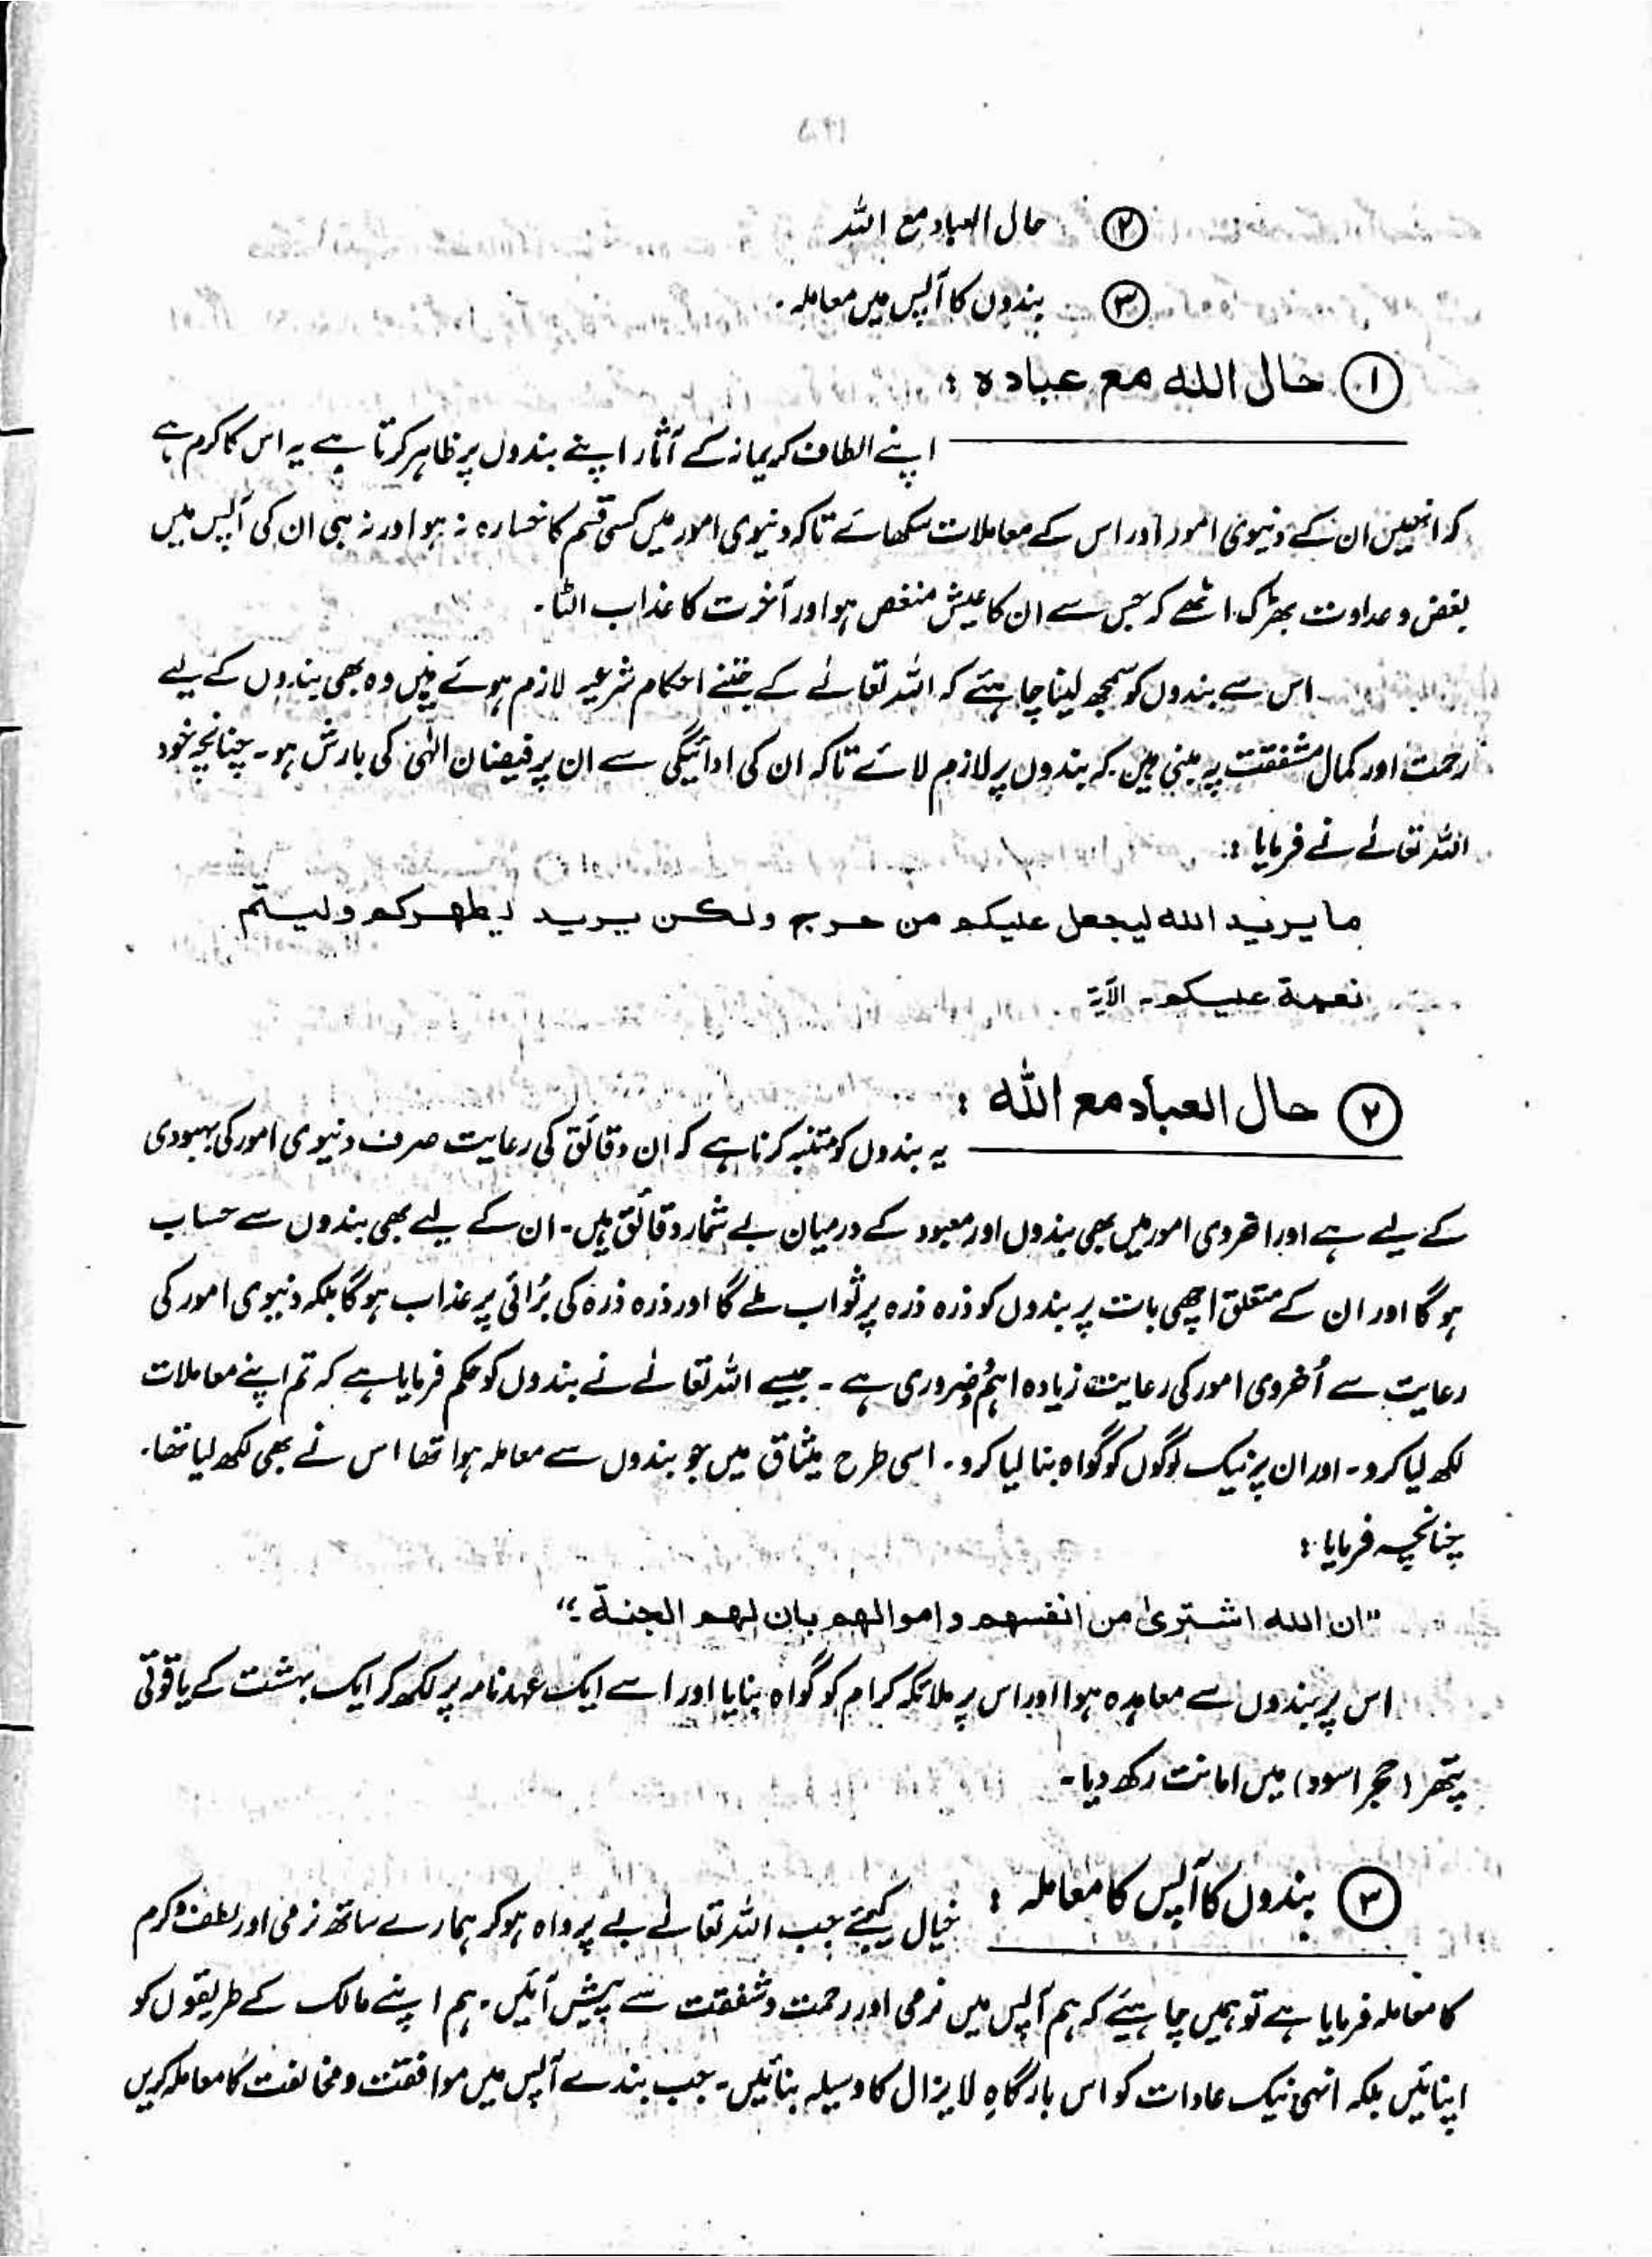 ۲ حال العباد مع اللہ
۳ بندوں کا آپس میں معاملہ۔
۱ حال الله مع عباده :
اپنے الطاف کریمانہ کے آثار اپنے بندوں پر ظاہر کرتا ہے یہ اس کا کرم ہے
کہ انھیں ان کے دنیوی امور اور اس کے معاملات سکھائے تاکہ دنیوی امور میں کسی قسم کا خسارہ نہ ہو اور نہ ہی ان کی آپس میں
بغض و عداوت بھڑک اٹھے کہ جس سے ان کا عیش منغص ہو اور آخرت کا عذاب الٹا۔
اس سے بندوں کو سمجھ لینا چاہئے کہ اللہ تعالےٰ کے جتنے احکام شرعیہ لازم ہوئے ہیں وہ بھی بندوں کے لیے
رحمت اور کمال شفقت پہ مبنی ہیں کہ بندوں پر لازم لائے تاکہ ان کی ادائیگی سے ان پر فیضان الٰہی کی بارش ہو۔ چنانچہ خود
اللہ تعالےٰ نے فرمایا :
ما يريد الله ليجعل عليكم من حرج ولكن يريد ليطهركم وليتم
نعمة عليكم۔ الآیۃ
۲ حال العباد مع الله :
یہ بندوں کو متنبہ کرنا ہے کہ ان دقائق کی رعایت صرف دنیوی امور کی بہبودی
کے لیے ہے اور اخروی امور میں بھی بندوں اور معبود کے درمیان بے شمار دقائق ہیں۔ ان کے لیے بھی بندوں سے حساب
ہوگا اور ان کے متعلق اچھی بات پر بندوں کو ذرہ ذرہ پر ثواب ملے گا اور ذرہ ذرہ کی بُرائی پر عذاب ہوگا بلکہ دنیوی امور کی
رعایت سے اُخروی امور کی رعایت زیادہ اہم و ضروری ہے ۔ جیسے اللہ تعالےٰ نے بندوں کو حکم فرمایا ہے کہ تم اپنے معاملات
لکھ لیا کرو۔ اور ان پر نیک لوگوں کو گواہ بنا لیا کرو۔ اسی طرح میثاق میں جو بندوں سے معاملہ ہوا تھا اس نے بھی لکھ لیا تھا۔
چنانچہ فرمایا :
"ان الله اشترىٰ من انفسهم واموالهم بان لهم الجنة۔"
اس پر بندوں سے معاہدہ ہوا اور اس پر ملائکہ کرام کو گواہ بنایا اور اسے ایک عہد نامہ پر لکھ کر ایک بہشت کے یاقوتی
پتھر (حجر اسود) میں امانت رکھ دیا۔
۳ بندوں کا آپس کا معاملہ :
خیال کیجئے جب اللہ تعالےٰ بے پرواہ ہو کر ہمارے ساتھ نرمی اور لطف و کرم
کا معاملہ فرمایا ہے تو ہمیں چاہیئے کہ ہم آپس میں نرمی اور رحمت و شفقت سے پیش آئیں۔ ہم اپنے مالک کے طریقوں کو
اپنائیں بلکہ انہی نیک عادات کو اس بارگاہِ لایزال کا وسیلہ بنائیں۔ جب بندے آپس میں موافقت و مخالفت کا معاملہ کریں